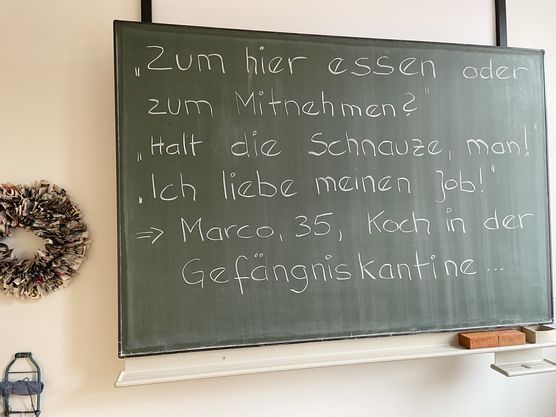 „Zum hier essen oder
zum Mitnehmen?"
„Halt die Schnauze, man!"
„Ich liebe meinen Job!"
⇒ Marco, 35, Koch in der
Gefängniskantine...